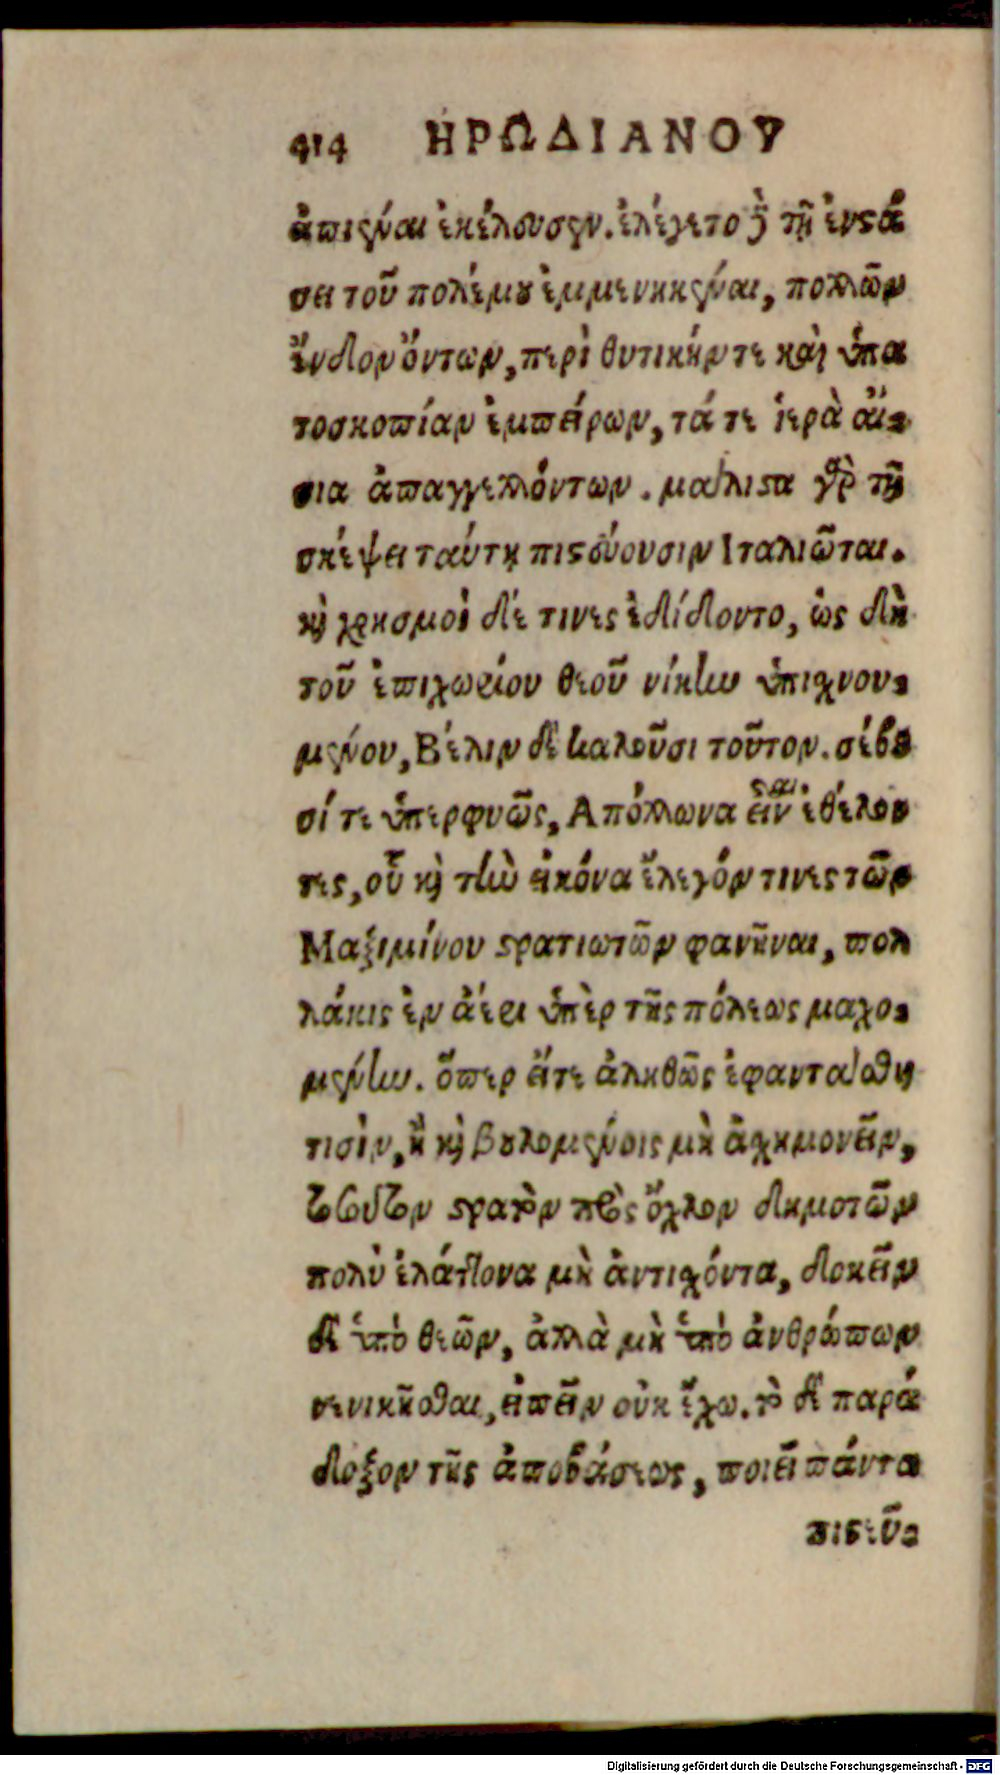 414 ΗΡΩΔΙΑΝΟΥ
ἀπιέναι ἐκέλευσεν. ἐλέγετο δὲ τῇ ἐνστά
σει τοῦ πολέμου ἐμμενηκέναι, πολλῶν
ἔνδον ὄντων, περὶ θυτικήν τε καὶ ἡπα
τοσκοπίαν ἐμπείρων, τά τε ἱερὰ αἴ-
σια ἀπαγγελλόντων. μάλιστα γὰρ τῇ
σκέψει ταύτῃ πιστεύουσιν Ιταλιῶται.
καὶ χρησμοὶ δέ τινες ἐδίδοντο, ὡς δὴ
τοῦ ἐπιχωρίου θεοῦ νίκην ὑπισχνου-
μένου, Βέλιν δὲ καλοῦσι τοῦτον. σέβου
σί τε ὑπερφυῶς, Απόλλωνα εἶναι ἐθέλον
τες, οὗ καὶ τὴν εἰκόνα ἔλεγόν τινες τῶν
Μαξιμίνου στρατιωτῶν φανῆναι, πολ
λάκις ἐν ἀέρι ὑπὲρ τῆς πόλεως μαχο-
μένην. ὅπερ εἴτε ἀληθῶς ἐφαντάσθη
τισὶν, ἢ καὶ βουλομένοις μὴ ἀσχημονεῖν,
τοσοῦτον στρατὸν πρὸς ὄχλον δημοτῶν
πολὺ ἐλάττονα μὴ ἀντισχόντα, δοκεῖν
δὲ ὑπὸ θεῶν, ἀλλὰ μὴ ὑπὸ ἀνθρώπων
νενικῆσθαι, εἰπεῖν οὐκ ἔχω. τὸ δὲ παρά
δοξον τῆς ἀποβάσεως, ποιεῖ πάντα
πιστεῦ-
Digitalisierung gefördert durch die Deutsche Forschungsgemeinschaft - DFG